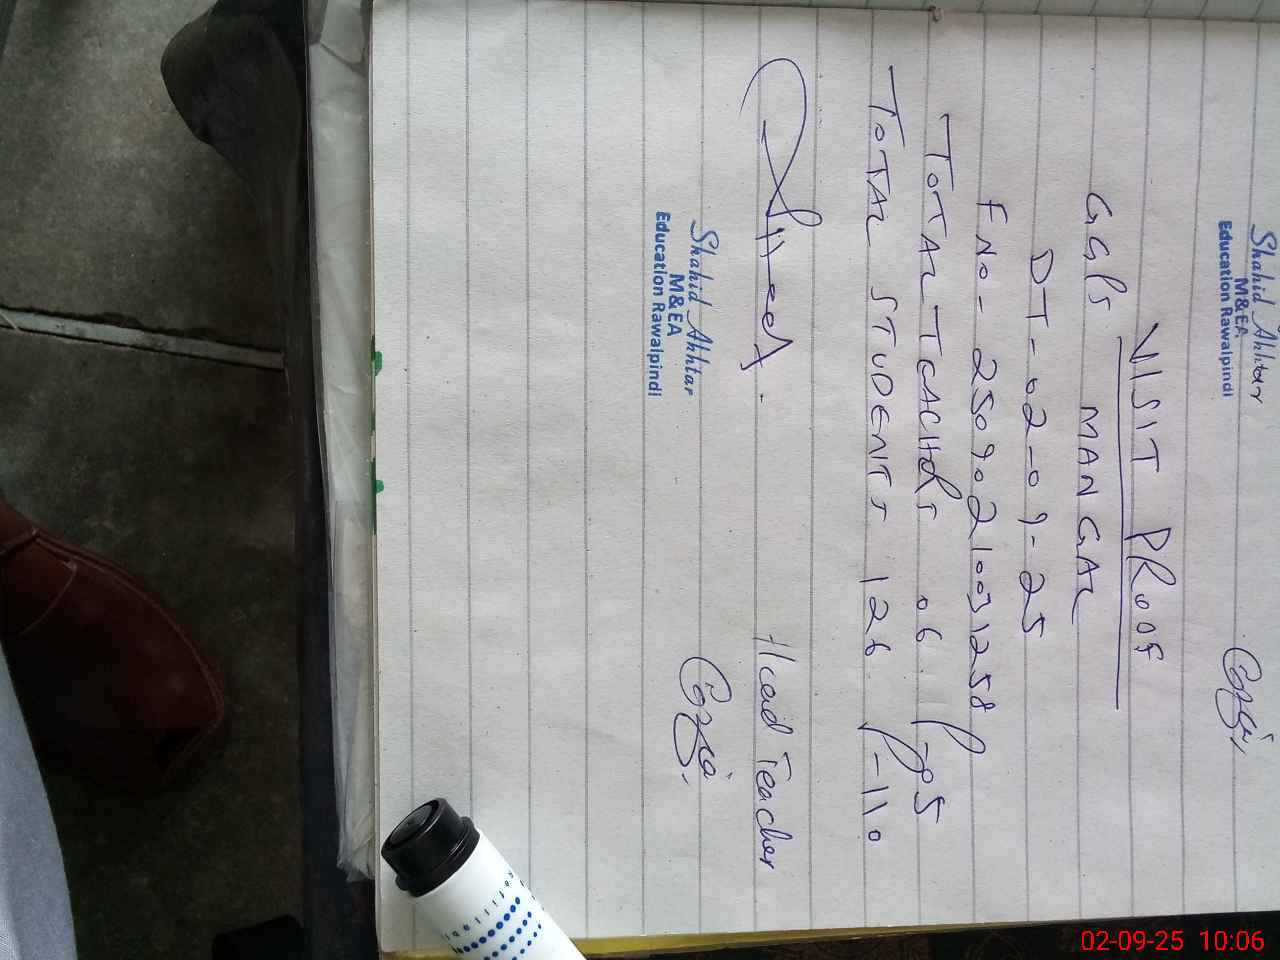 Shahid Akhtar
M&EA
Education Rawalpindi
VISIT PROOF
GGPS MANGAL
DT-02-09-25
FNO- 25090210031258
TOTAL TEACHERS 06. P-05
TOTAL STUDENTS 126. P-110
Head Teacher
Shahid Akhtar
M&EA
Education Rawalpindi
02-09-25 10:06